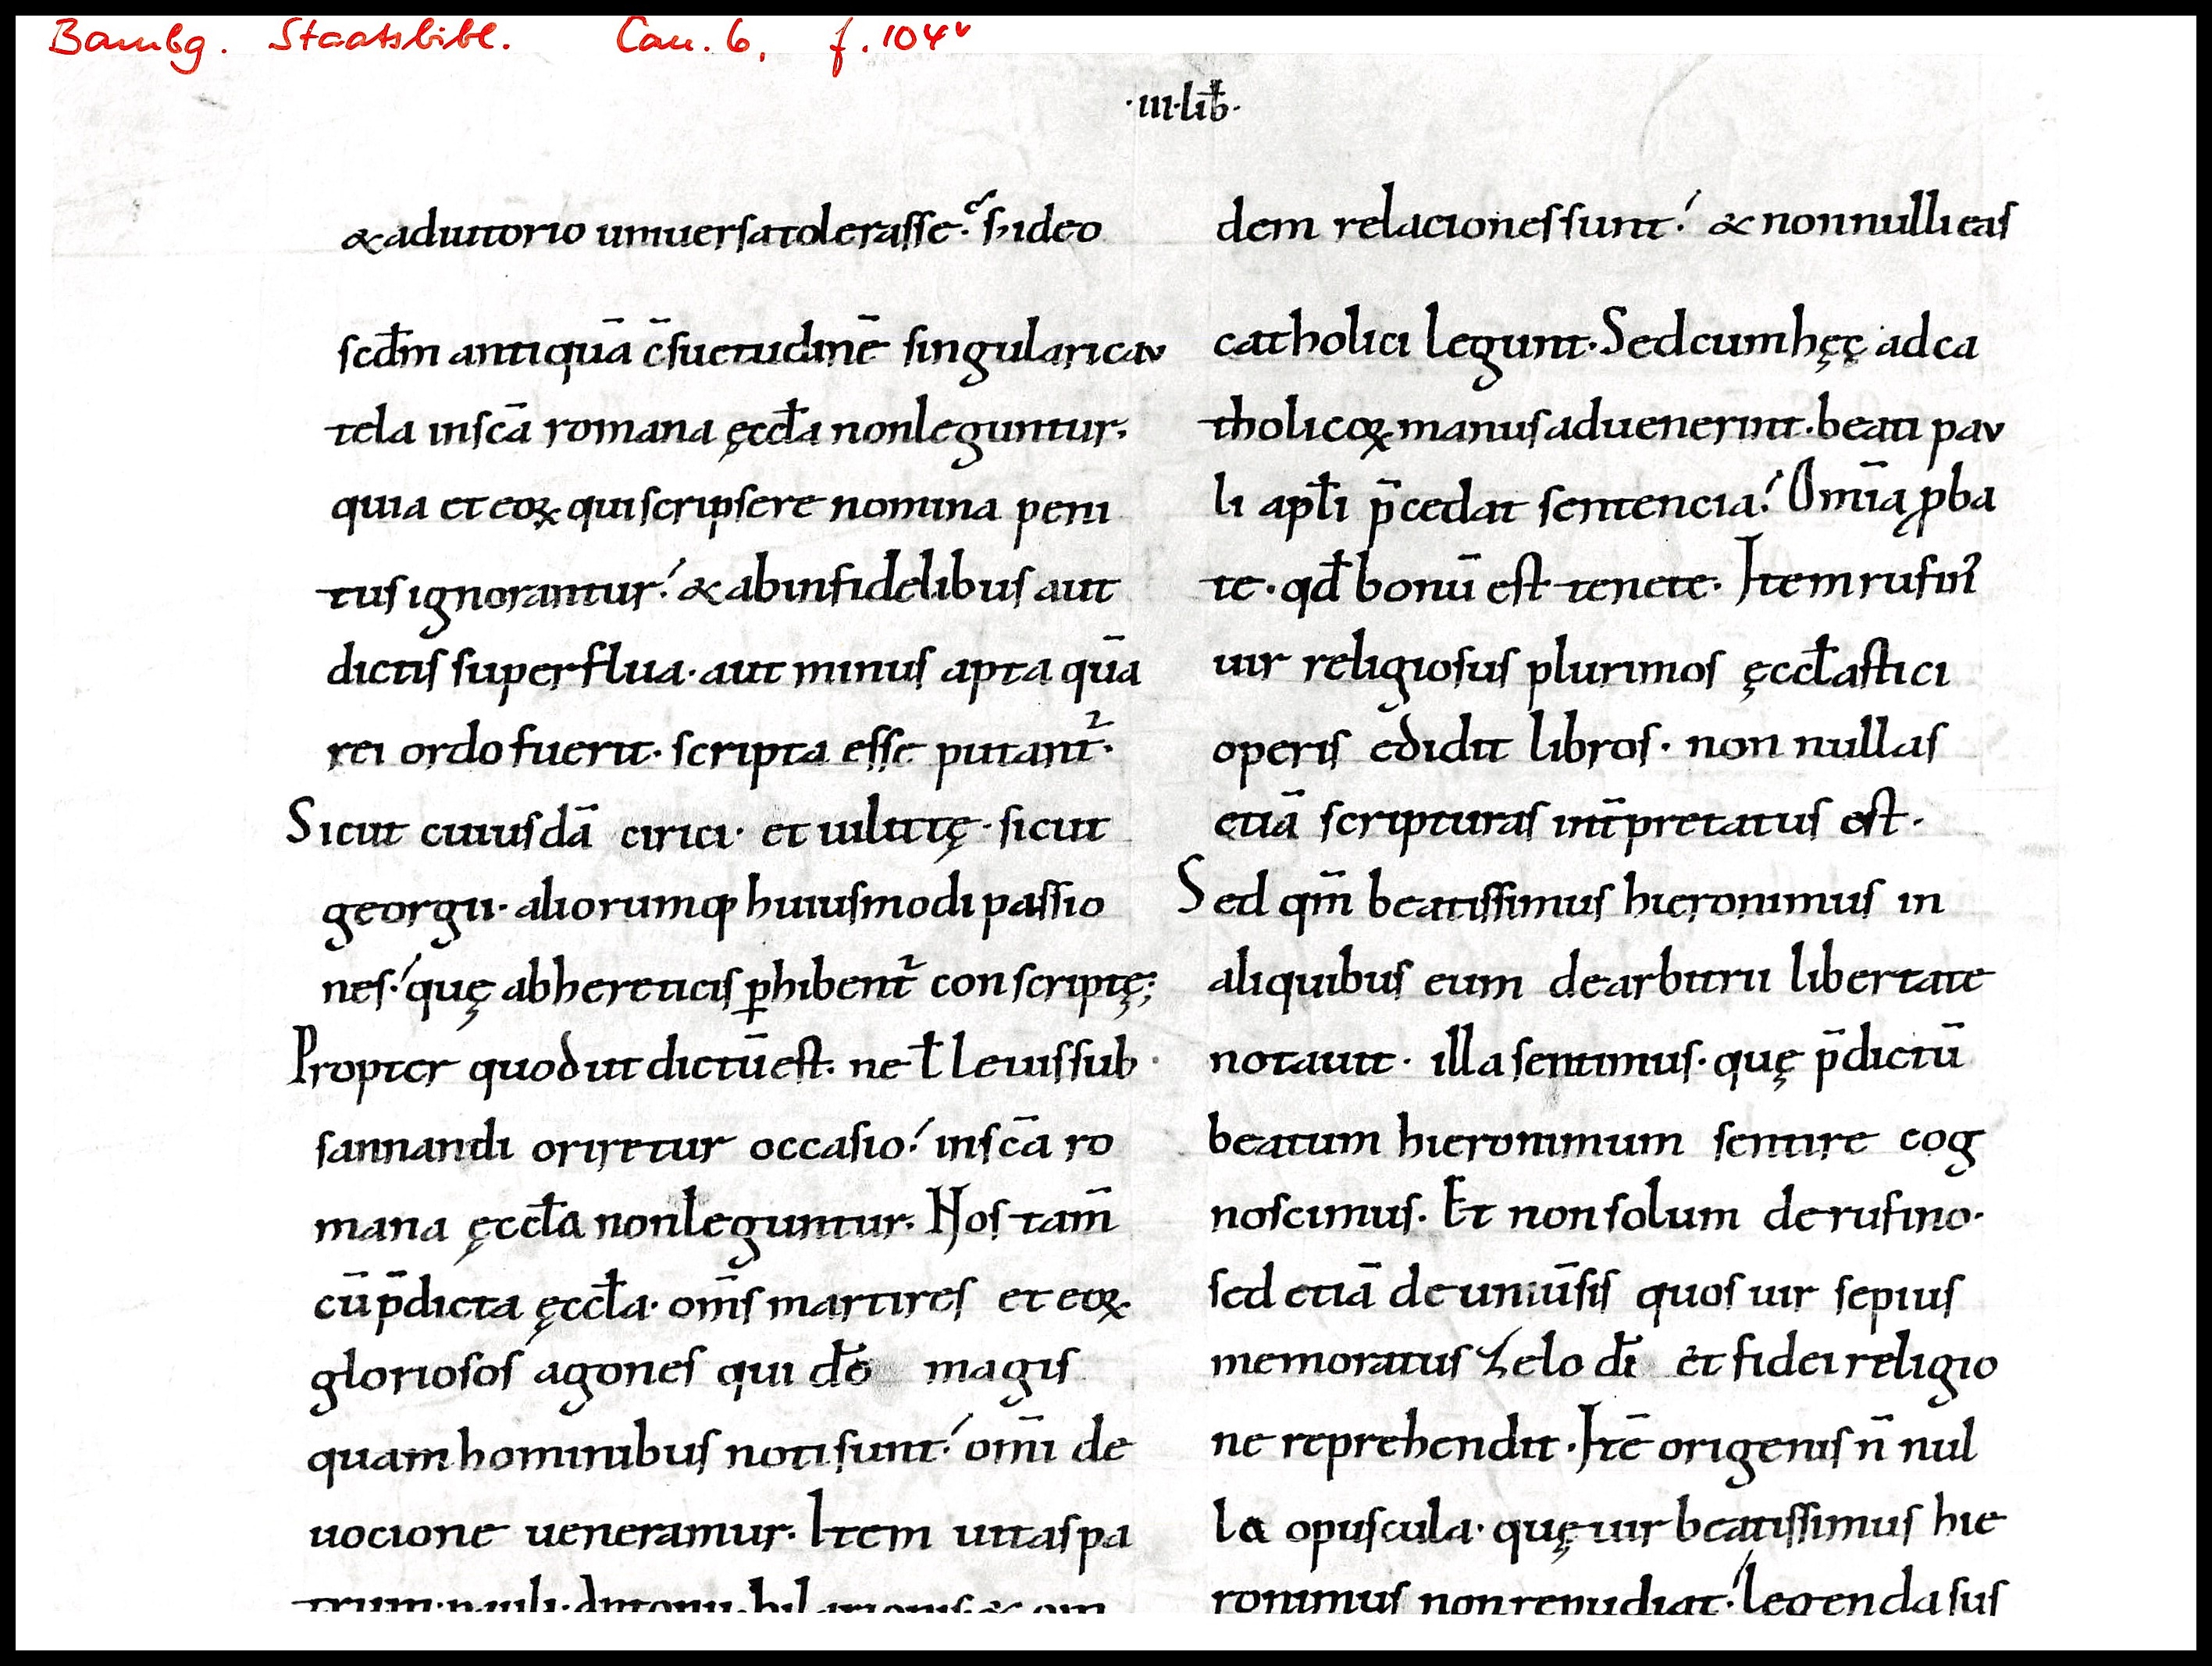 Bambg. Staatsbibl. Can. 6, f. 104v
·III·lib̄·
& adiutorio uniuersa tolerasse. s; ideo
scd̄m antiquā c̄suetudinē singulari cau
tela in sc̄a romana ęccl̄a non leguntur.
quia et eoꝝ qui scripsere nomina peni
tus ignorantur. & ab infidelibus aut
dictis superflua. aut minus apta quā
rei ordo fuerit. scripta esse putant᷑.
Sicut cuiusdā cirici. et uilittę. sicut
georgii. aliorumq; huiusmodi passio
nes. quę ab hereticis ꝑhibent᷑ conscriptę;
Propter quod ut dictū est. ne l̄ leuis sub
sannandi oriretur occasio. in sc̄a ro
mana ęccl̄a non leguntur. Nos tam̄
cū p̄dicta ęccl̄a. om̄s martires et eoꝝ
gloriosos agones qui dō magis
quam hominibus noti sunt. om̄i de
uocione ueneramur. Item uitas pa
trum. pauli. antonii. hilarionis. & om
dem relaciones sunt. & nonnulli eas
catholici legunt. Sed cum hęc ad ca
tholicoꝝ manus aduenerint. beati pau
li apl̄i p̄cedat sentencia. Om̄ia ꝓba
te. qd̄ bonū est tenete. Item rufin᷒
uir religiosus plurimos ęccl̄astici
operis edidit libros. non nullas
etiā scripturas int̄pretatus est.
Sed qm̄ beatissimus hieronimus in
aliquibus eum de arbitrii libertate
notauit. illa sentimus. quę p̄dictū
beatum hieronimum sentire cog
noscimus. Et non solum de rufino.
sed etiā de uniūsis quos uir sepius
memoratus zelo dī et fidei religio
ne reprehendit. Itē origenis n̄ nul
la opuscula. quę uir beatissimus hie
ronimus non repudiat. legenda sus